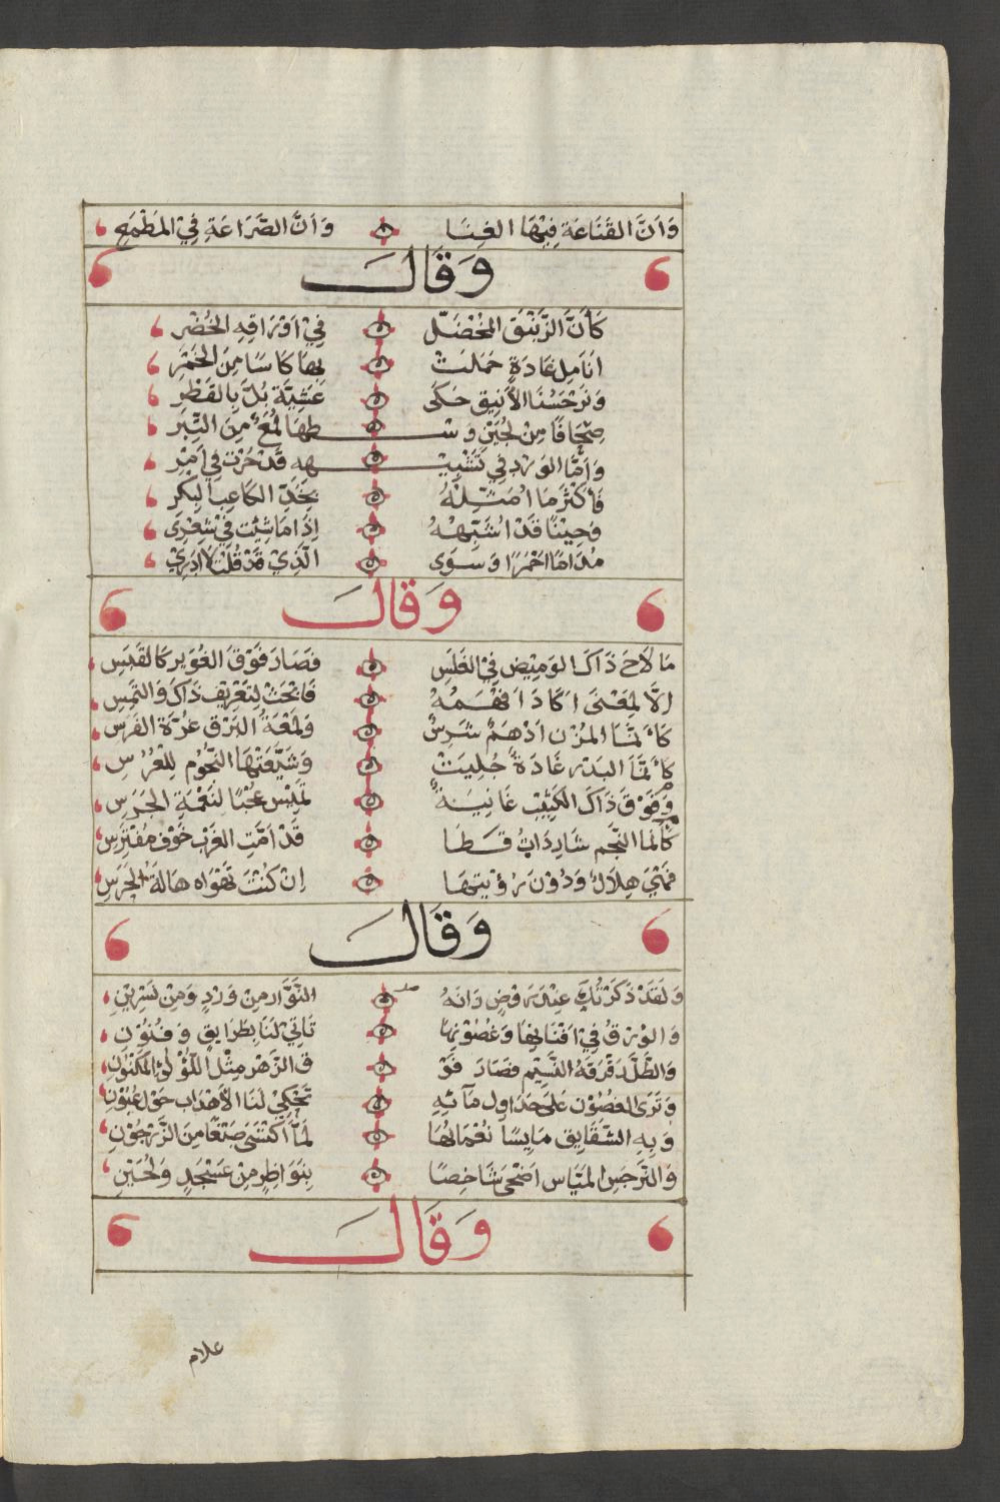 وَاَنَّ القَنَاعَةَ فِيْهَا الغِنَا وَاَنَّ الضَّرَاعَةِ فِيْ المَطْمَعِ
وَقَالَ
كَأَنَّ الزَّنْبَقَ المُخْضَلّ فِيْ اَوْرَاقِهِ الخُضْر
اَنَامِل غَادَةٍ حَمَلَتْ بِهَا كَاسَا مِنَ الخَمْر
وَنَرْجَسُنَا الأَنِيق حَكَى عَشِيَّة بُلَّ بِالقَطْر
صِحَافًا مِنْ لُجَيْنٍ وَشطهَا لُمَعٌ مِنَ التِّبْر
وَاَمَّا الوَرْد فِي تَشْبِيْهِه قَدْ حُرْت فِي اَمْر
فَاكْثَرَ مَا اُمَثِّلُهُ بِخَدِّ الكَاعِبِ البِكْر
وَحِيْنًا قَدْ اُشَبِّهُهُ اِذَا مَا شِئْت فِيْ شِعْرِي
مُدَامًا اَحْمَرًا وَسِوَى الَّذِيْ قَدْ قُلْت لَا اَدْرِيْ
وَقَالَ
مَا لَاحَ ذَاكَ الوَمِيْض فِيْ الغَلَسِ فَصَارَ فَوْقَ الغُوَيْر كَالقَبَسِ
اِلَّا لِمَعْنَى اَكَادَ اَفْهَمُهُ فَابْحَثْ لِتَعْرِيْف ذَاكَ وَالتَمِسِ
كَاَنَّمَا المُزْن اَدْهَمٌ شَرِسٌ وَلَمْعَةُ البَرْق غُرَّةُ الفَرَسِ
كَاَنَّمَا البَدْر غَادَةٌ جُلِيَتْ وَشَيَّعَتْهَا النُّجُوْم لِلْعُرُسِ
وَفَوْقَ ذَاكَ الكَثِيْبِ غَانِيَةٌ تَمِيْس عُجْبًا لِنَغْمَةِ الجَرَسِ
كَاَنَّمَا النَّجْم شَارِدَاتُ قَطَا قَدْ اَمَّتِ الغَرْب خَوْف مُفْتَرِسِ
فَهْيَ هِلَالٌ وَدُوْنَ رُؤْيَتِهَا اِنْ كُنْتَ تَهْوَاه هَالَةُ الحَرَسِ
وَقَالَ
وَلَقَدْ ذَكَرْتُكِ عِنْدَ رَوْضٍ زَانَهُ النَّوَّار مِنْ وَرْدٍ وَمِنْ نَسْرِيْنِ
وَالوُرْقُ فِيْ اَفْنَانِهَا وَغُصُوْنِهَا تَاتِيْ لَنَا بِطَرَايِقٍ وَفُنُوْنِ
وَالطَّلّ رَقْرَقَهُ النَّسِيْم فَصَارَ فَوْق الزَّهْر مِثْل اللُّؤْلُؤِ المَكْنُوْنِ
وَتَرَى الغُصُوْن عَلَى جَدَاوِل مَآئِهِ تَحْكِيْ لَنَا الأَهْدَاب حَوْل عُيُوْنِ
وَبِهِ الشَّقَايِق مَايِسًا نُعْمَانُهَا لَمَّا اكْتَسَى صِبْغًا مِنَ الزَّرَجُوْنِ
وَالنَّرْجِس المَيَّاس اَضْحَى شَاخِصًا بِنَوَاظِرٍ مِنْ عَسْجَدٍ وَلُجَيْنِ
وَقَالَ
علام